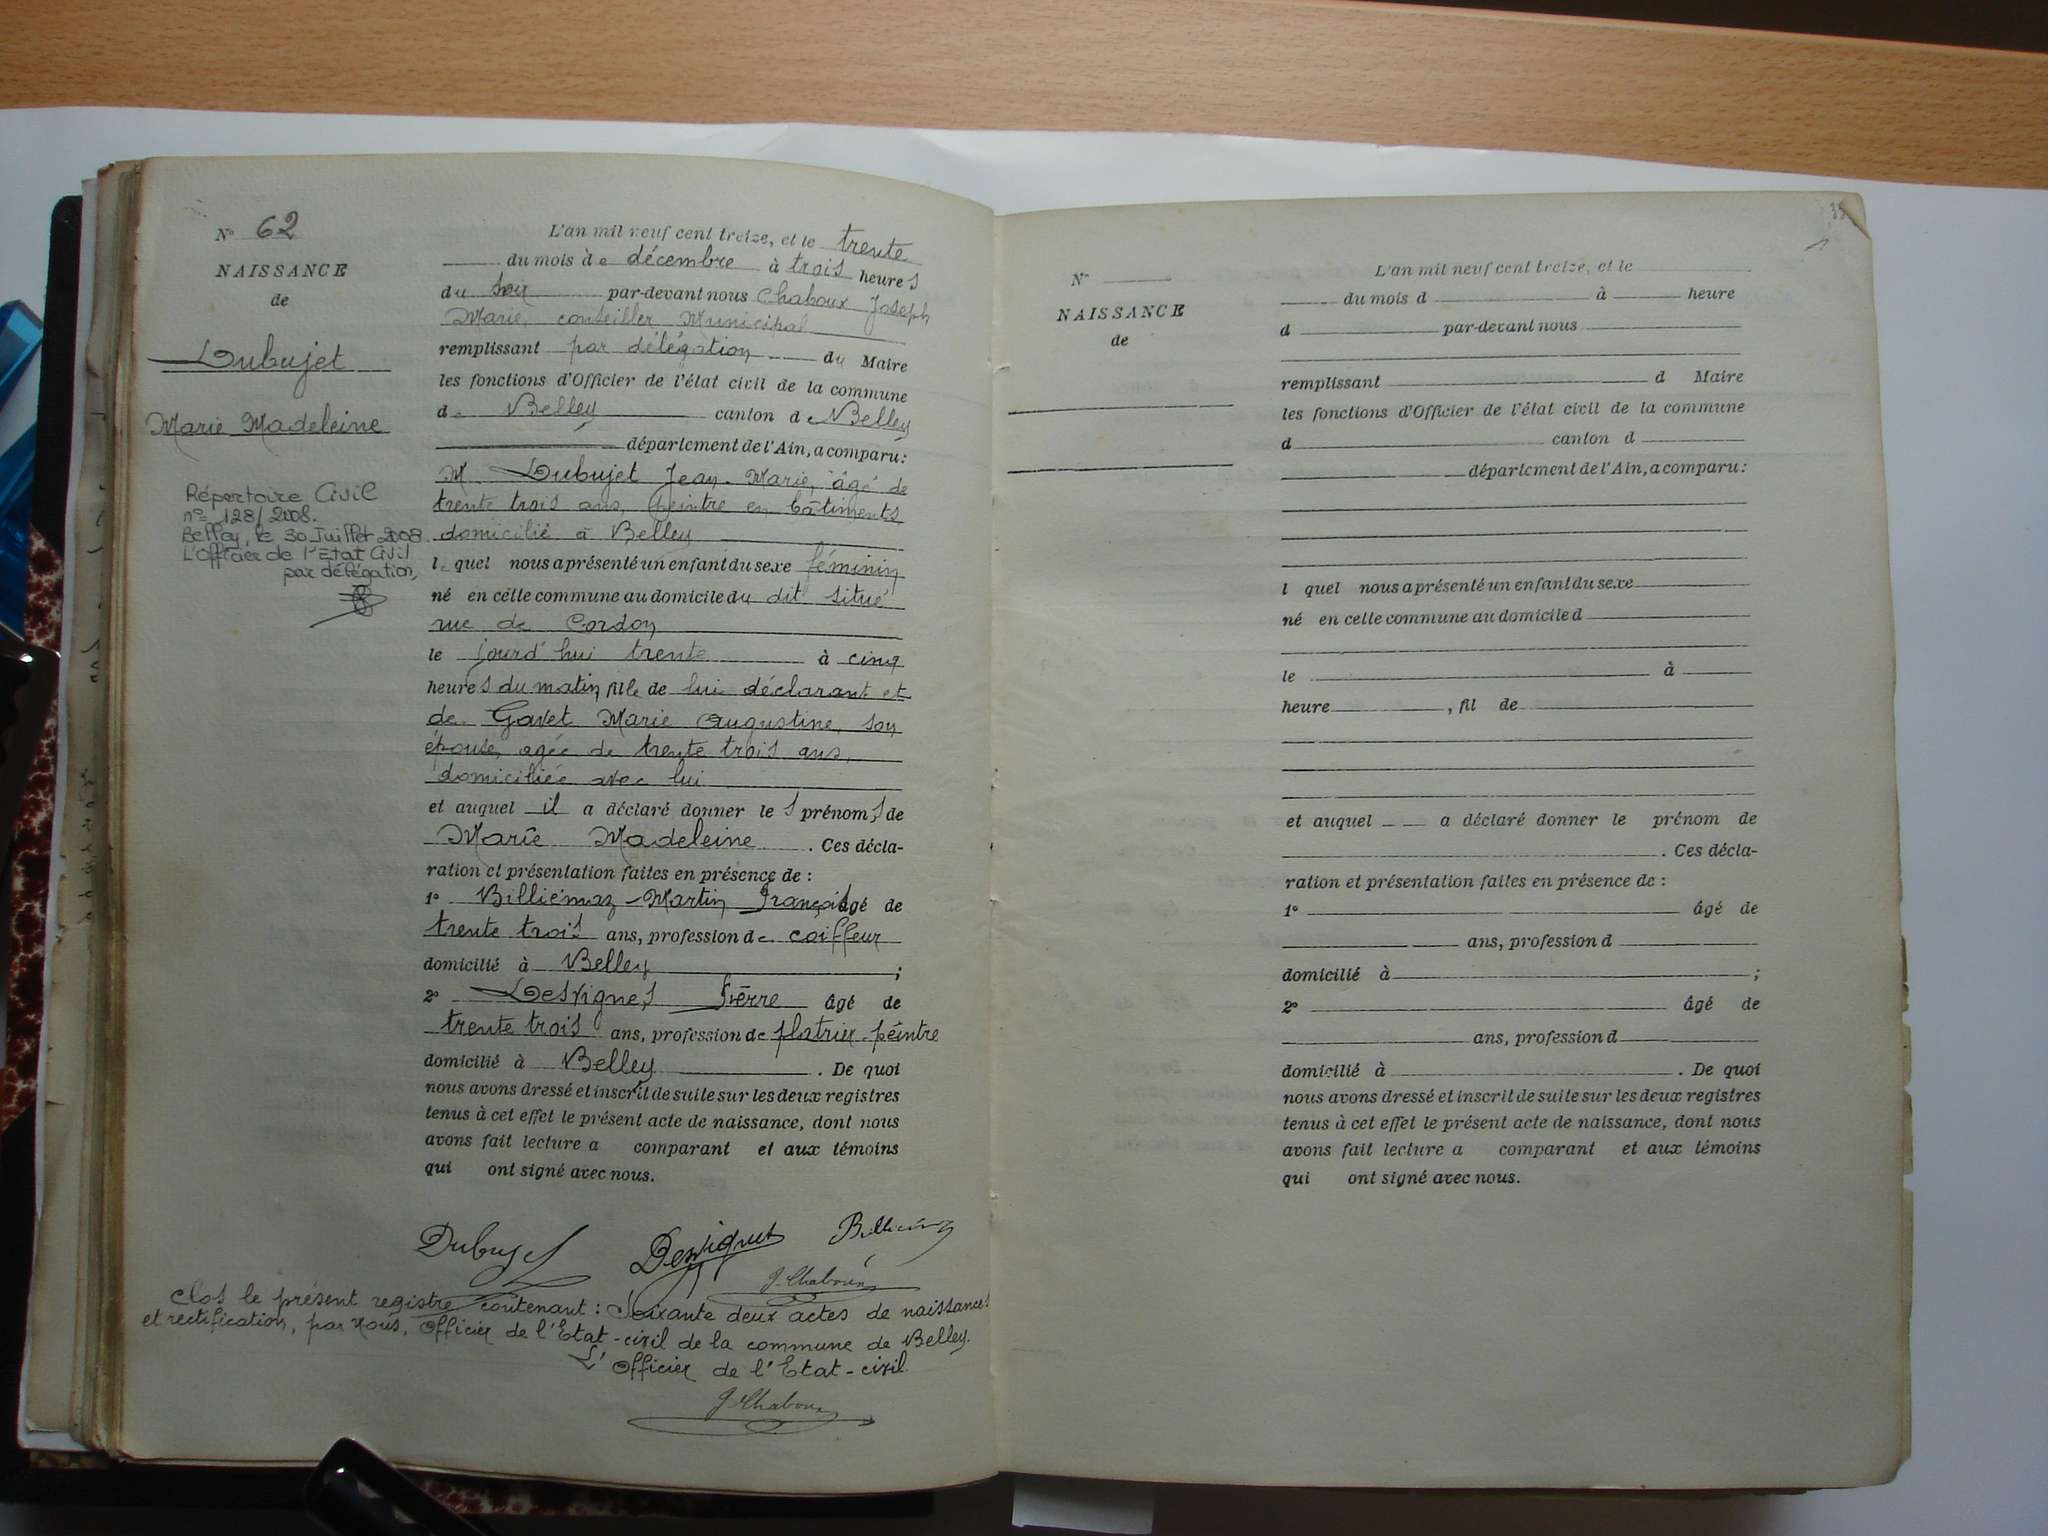 N° 62
NAISSANCE
de
Dubujet
Marie Madeleine
Répertoire Civil
n° 128/2008.
Belley, le 30 Juillet 2008.
L'Officier de l'Etat Civil
par délégation,
L'an mil neuf cent treize, et le trente
du mois de décembre à trois heures
du soir par-devant nous Chaboux Joseph
Marie, conseiller Municipal
remplissant par délégation du Maire
les fonctions d'Officier de l'état civil de la commune
de Belley canton de Belley
département de l'Ain, a comparu:
M. Dubujet Jean-Marie, âgé de
trente trois ans, peintre en bâtiments
domicilié à Belley
lequel nous a présenté un enfant du sexe féminin
né en cette commune au domicile du dit situé
rue de Cordon
le jourd'hui trente à cinq
heures du matin, fille de lui déclarant et
de Gavet Marie Augustine, son
épouse, agée de trente trois ans,
domiciliée avec lui
et auquel il a déclaré donner les prénoms de
Marie Madeleine. Ces décla-
ration et présentation faites en présence de :
1° Billiémaz Martin François âgé de
trente trois ans, profession de coiffeur
domicilié à Belley ;
2° Desvignes Pierre âgé de
trente trois ans, profession de platrier-peintre
domicilié à Belley. De quoi
nous avons dressé et inscrit de suite sur les deux registres
tenus à cet effet le présent acte de naissance, dont nous
avons fait lecture a comparant et aux témoins
qui ont signé avec nous.
Dubujet Desvignes Billiémaz
J. Chaboux
Clos le présent registre contenant : Soixante deux actes de naissances
et rectification, par nous, Officier de l'Etat-civil de la commune de Belley.
L'Officier de l'Etat-civil.
J. Chaboux
N°
NAISSANCE
de
L'an mil neuf cent treize, et le
du mois d à heure
d par-devant nous
remplissant d Maire
les fonctions d'Officier de l'état civil de la commune
d canton d
département de l'Ain, a comparu:
l quel nous a présenté un enfant du sexe
né en cette commune au domicile d
le à
heure , fil de
et auquel a déclaré donner le prénom de
. Ces décla-
ration et présentation faites en présence de :
1° âgé de
ans, profession d
domicilié à ;
2° âgé de
ans, profession d
domicilié à . De quoi
nous avons dressé et inscrit de suite sur les deux registres
tenus à cet effet le présent acte de naissance, dont nous
avons fait lecture a comparant et aux témoins
qui ont signé avec nous.